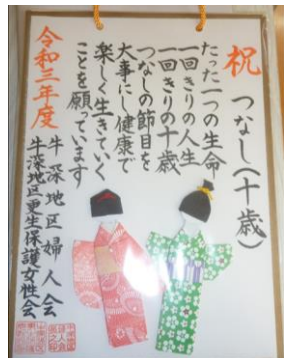 祝
つなし(十歳)
たった一つの生命
一回きりの人生
一回きりの十歳
つなしの節目を
大事にし健康で
楽しく生きていく
ことを願っています
令和三年度
牛深地区婦人会
牛深地区更生保護女性会